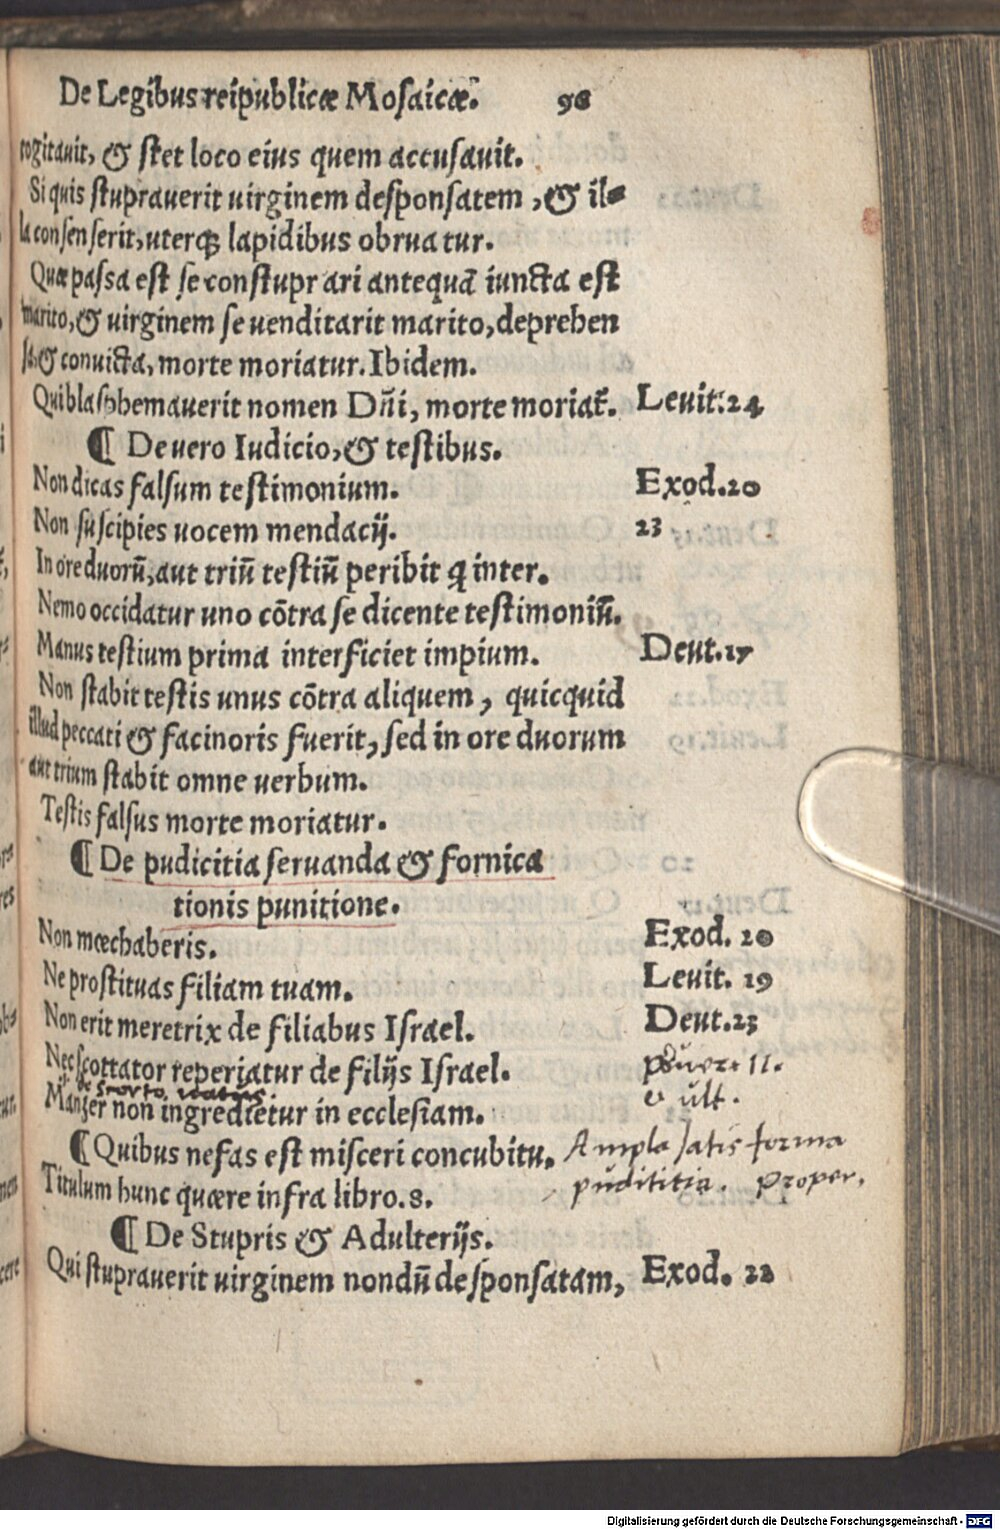 De Legibus reipublicæ Mosaicæ. 96
cogitauit, & stet loco eius quem accusauit.
Si quis stuprauerit uirginem desponsatem, & il-
la consenserit, uterq; lapidibus obruatur.
Quæ passa est se constuprari antequã iuncta est
marito, & uirginem se uenditarit marito, deprehen
sa & conuicta, morte moriatur. Ibidem.
Qui blasphemauerit nomen Dñi, morte moriat̃. Leuit. 24
¶ De uero Iudicio, & testibus.
Non dicas falsum testimonium. Exod. 20
Non suscipies uocem mendacij. 23
In ore duorũ, aut triũ testiũ peribit q̃ inter.
Nemo occidatur uno cõtra se dicente testimoniũ.
Manus testium prima interficiet impium. Deut. 17
Non stabit testis unus cõtra aliquem, quicquid
illud peccati & facinoris fuerit, sed in ore duorum
aut trium stabit omne uerbum.
Testis falsus morte moriatur.
¶ De pudicitia seruanda & fornica
tionis punitione.
Non mœchaberis. Exod. 20
Ne prostituas filiam tuam. Leuit. 19
Non erit meretrix de filiabus Israel. Deut. 23
Nec scortator reperiatur de filijs Israel.
de scorto natus
Manzer non ingredietur in ecclesiam. & ult.
¶ Quibus nefas est misceri concubitu. Ampla satis forma
Titulum hunc quære infra libro. 8. pudititia. Proper.
¶ De Stupris & Adulterijs.
Qui stuprauerit uirginem nondũ desponsatam, Exod. 22
Digitalisierung gefördert durch die Deutsche Forschungsgemeinschaft - DFG